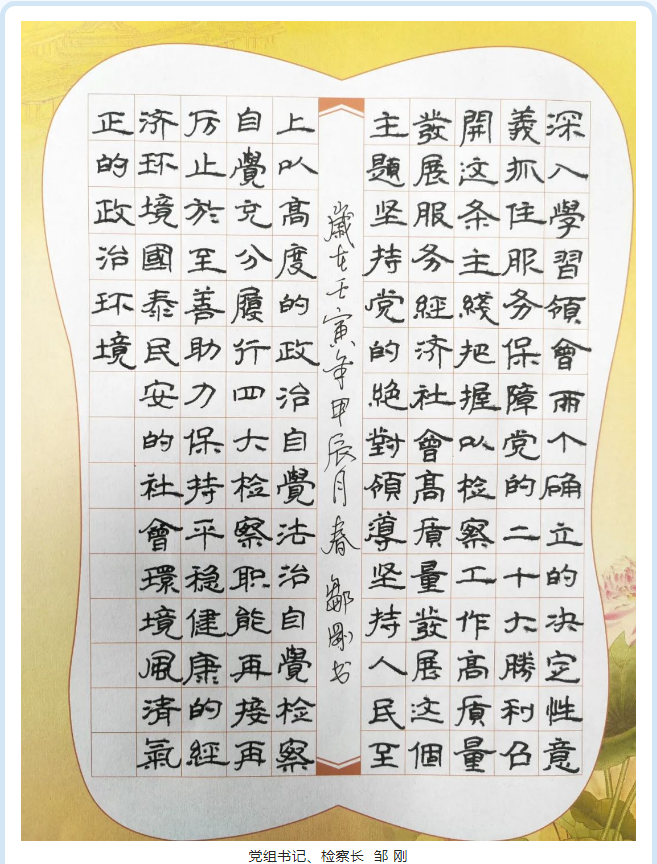 深入學習領會兩个确立的决定性意
義抓住服务保障党的二十大勝利召
開这条主綫把握以检察工作高质量
發展服务經济社會高质量發展这個
主題坚持党的絶對領導坚持人民至
歲在壬寅年甲辰月春 鄒刚书
上以高度的政治自覺法治自覺检察
自覺充分履行四大检察职能再接再
厉止於至善助力保持平稳健康的經
济环境國泰民安的社會環境风清氣
正的政治环境
党组书记、检察长 邹 刚